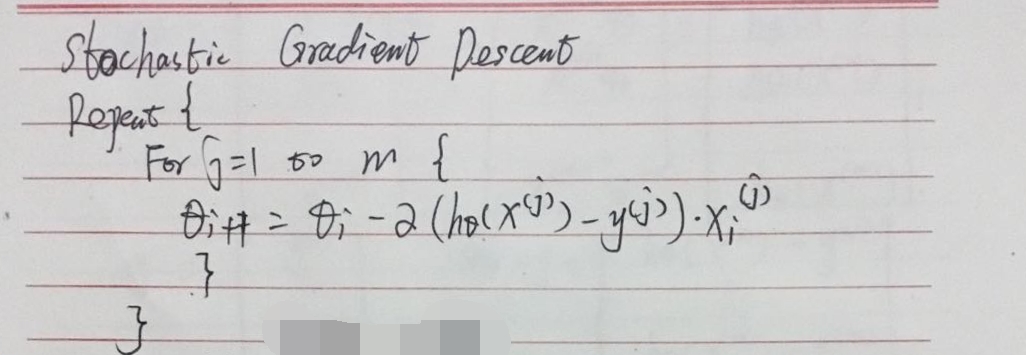 Stochastic Gradient Descent
Repeat {
For j=1 to m {
θi+1 = θi - 2 (hθ(x^(j)) - y^(j)) · xi^(j)
}
}